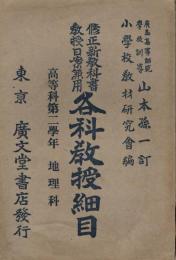 廣島高等師範
學校訓導
山本孫一訂
小學校教材研究會編
修正新教科書
教授日案兼用
各科教授細目
高等科第二學年 地理科
東京 廣文堂書店發行